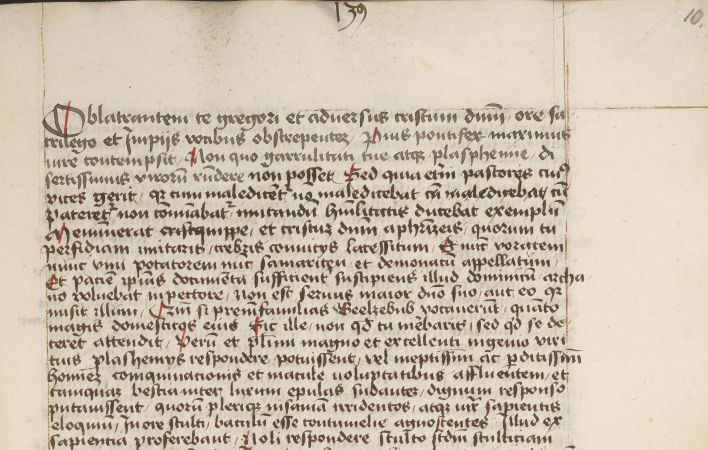 139
10.
Oblatrantem te gregori et adversus cristum dnm / ore sa
crilego et impijs vocibus obstrepentez / Pius pontifex maximus
iure contempsit / Non quo garrulitati tue atqz plasphemie / di
sertissimus virorum rñdere non posset Sed quia eim pastores cuiꝰ
vices gerit / qr cum malediceret no maledicebat cū maledicebat cū
pateret non comīabatr imitandū humilitatis ducebat exemplū
Meminerat quippe / et cristuz dnm a phrizeis / quorum tu
perfidiam imitaris / crebris convicijs lacessitum / Et nūc voratem
nunc vini potatorem nūc samaritēn et demonatū appellatum /
Et pacie ipsius documenta sufficient suscipiens illud dominicū archa
no volvebat in pectore / Non est servus maior dno suo / aut eo qr
misit illum / Si premfamilias Beelzebub vocaverūt / quāto
magis domesticos eius Sic ille / non qd tu mebaris / sed qd se de
ceret attendit / Verū et plimi magno et excellenti ingenio viri
tuis plasphemijs respondere potuissent / vel ineptissim ac pditissim
hominez coinquinationis et macule voluptatibus affluentem / et
tamquaz bestia inter luxum epulas sudantez / dignum responso
putavissent / quorū pleriqz insaniā irridentes / atqz sapientis
eloquiū / In ore stulti / baculū esse contumelie agnoscentes Illud ex
sapientia proferebant / Noli respondere stulto scdm stulticiam